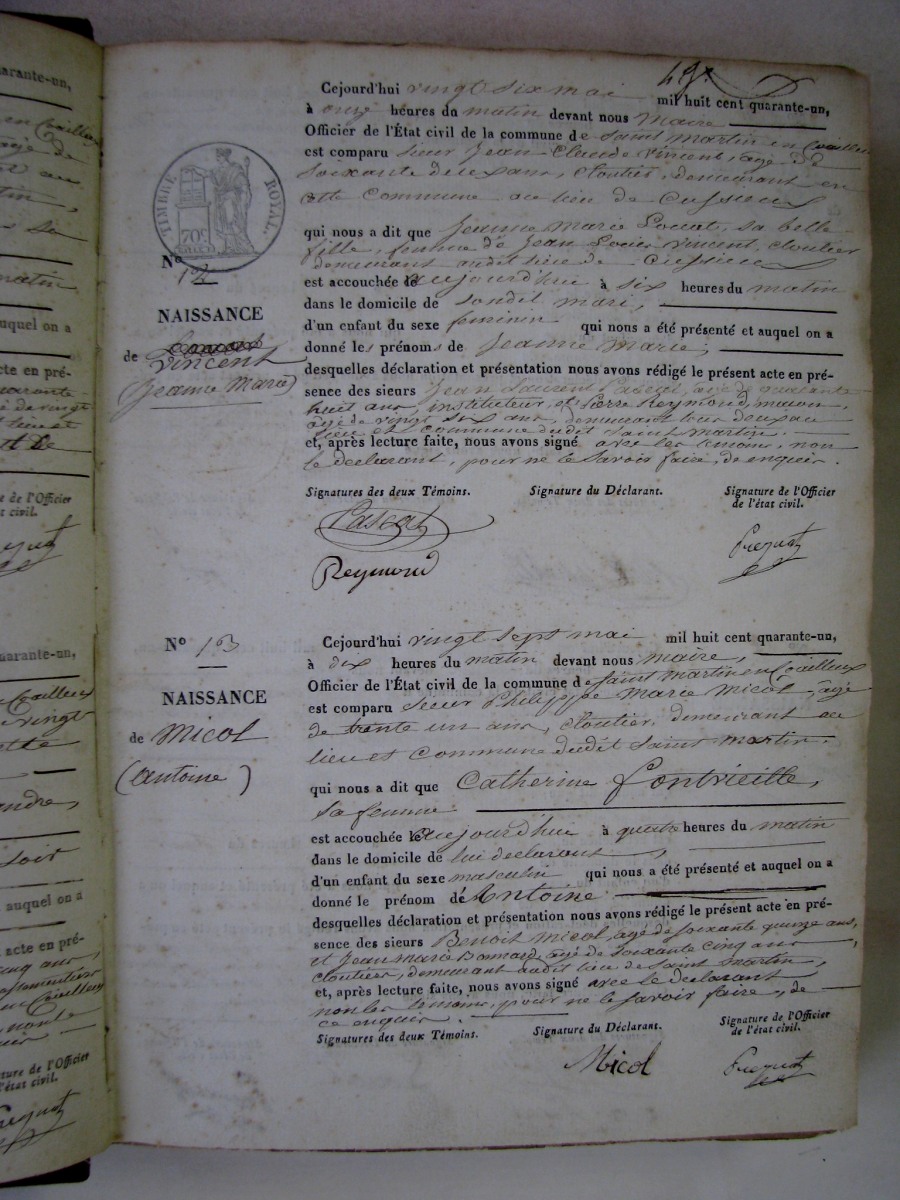 Cejourd'hui vingt six mai mil huit cent quarante-un,
à onze heures du matin devant nous maire
Officier de l'État civil de la commune de Saint Martin en Coailleux
est comparu sieur Jean Claude Vincent, agé de
soixante deux ans, cloutier, demeurant en
cette Commune au lieu de Cussieux
qui nous a dit que Jeanne Marie sa belle
fille, femme de Jean Vincent, cloutier
demeurant audit lieu de Cussieux
est accouchée le aujourd'hui à six heures du matin
dans le domicile de sondit mari,
d'un enfant du sexe feminin qui nous a été présenté et auquel on a
donné les prénoms de Jeanne Marie,
desquelles déclaration et présentation nous avons rédigé le présent acte en pré-
sence des sieurs Jean Laurent Pascal, agé de quarante
huit ans, instituteur, et Pierre Reymond maçon,
agé de vingt six ans, demeurant tous deux au
lieu et commune dudit Saint Martin.
et, après lecture faite, nous avons signé avec les temoins, non
le declarant, pour ne le savoir faire, de enquis.
Signatures des deux Témoins. Signature du Déclarant. Signature de l'Officier
de l'état civil.
Pascal
Reymond
TIMBRE ROYAL
70c
No 12
NAISSANCE
de Vincent
(Jeanne Marie)
No 13
NAISSANCE
de Micol
(Antoine)
Cejourd'hui vingt sept mai mil huit cent quarante-un,
à dix heures du matin devant nous maire,
Officier de l'État civil de la commune de Saint Martin en Coailleux
est comparu Sieur Philippe Marie Micol, agé
de trente un ans, cloutier, demeurant au
lieu et commune dudit Saint Martin.
qui nous a dit que Catherine Fontvieille,
sa femme
est accouchée le aujourd'hui à quatre heures du matin
dans le domicile de lui declarant,
d'un enfant du sexe masculin qui nous a été présenté et auquel on a
donné le prénom d'Antoine
desquelles déclaration et présentation nous avons rédigé le présent acte en pré-
sence des sieurs Benoit Micol, agé de soixante quinze ans,
et Jean Marie Bonnard, agé de soixante cinq ans
cloutier, demeurant audit lieu de Saint Martin,
et, après lecture faite, nous avons signé avec le declarant
non les temoins, pour ne le savoir faire, de
ce enquis.
Signatures des deux Témoins. Signature du Déclarant. Signature de l'Officier
de l'état civil.
Micol